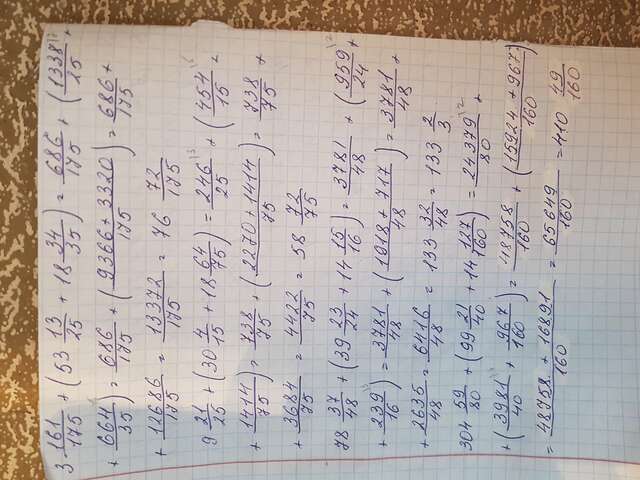 3 161/175 + (53 13/25 + 18 34/35) = 686/175 + (1338/25 +
+ 664/35) = 686/175 + (9366+3320/175) = 686/175 +
+ 12686/175 = 13372/175 = 76 72/175
9 21/25 + (30 4/15 + 18 64/75) = 246/25 + (454/15 +
+ 1414/75) = 738/75 + (2270+1414/75) = 738/75 +
+ 3684/75 = 4422/75 = 58 72/75
78 37/48 + (39 23/24 + 14 15/16) = 3781/48 + (959/24 +
+ 239/16) = 3781/48 + (1918+717/48) = 3781/48 +
+ 2635/48 = 6416/48 = 133 32/48 = 133 2/3
304 59/80 + (99 21/40 + 14 127/160) = 24379/80 +
+ (3981/40 + 967/160) = 48758/160 + (15924+967/160)
= 48758+16891/160 = 65649/160 = 410 49/160